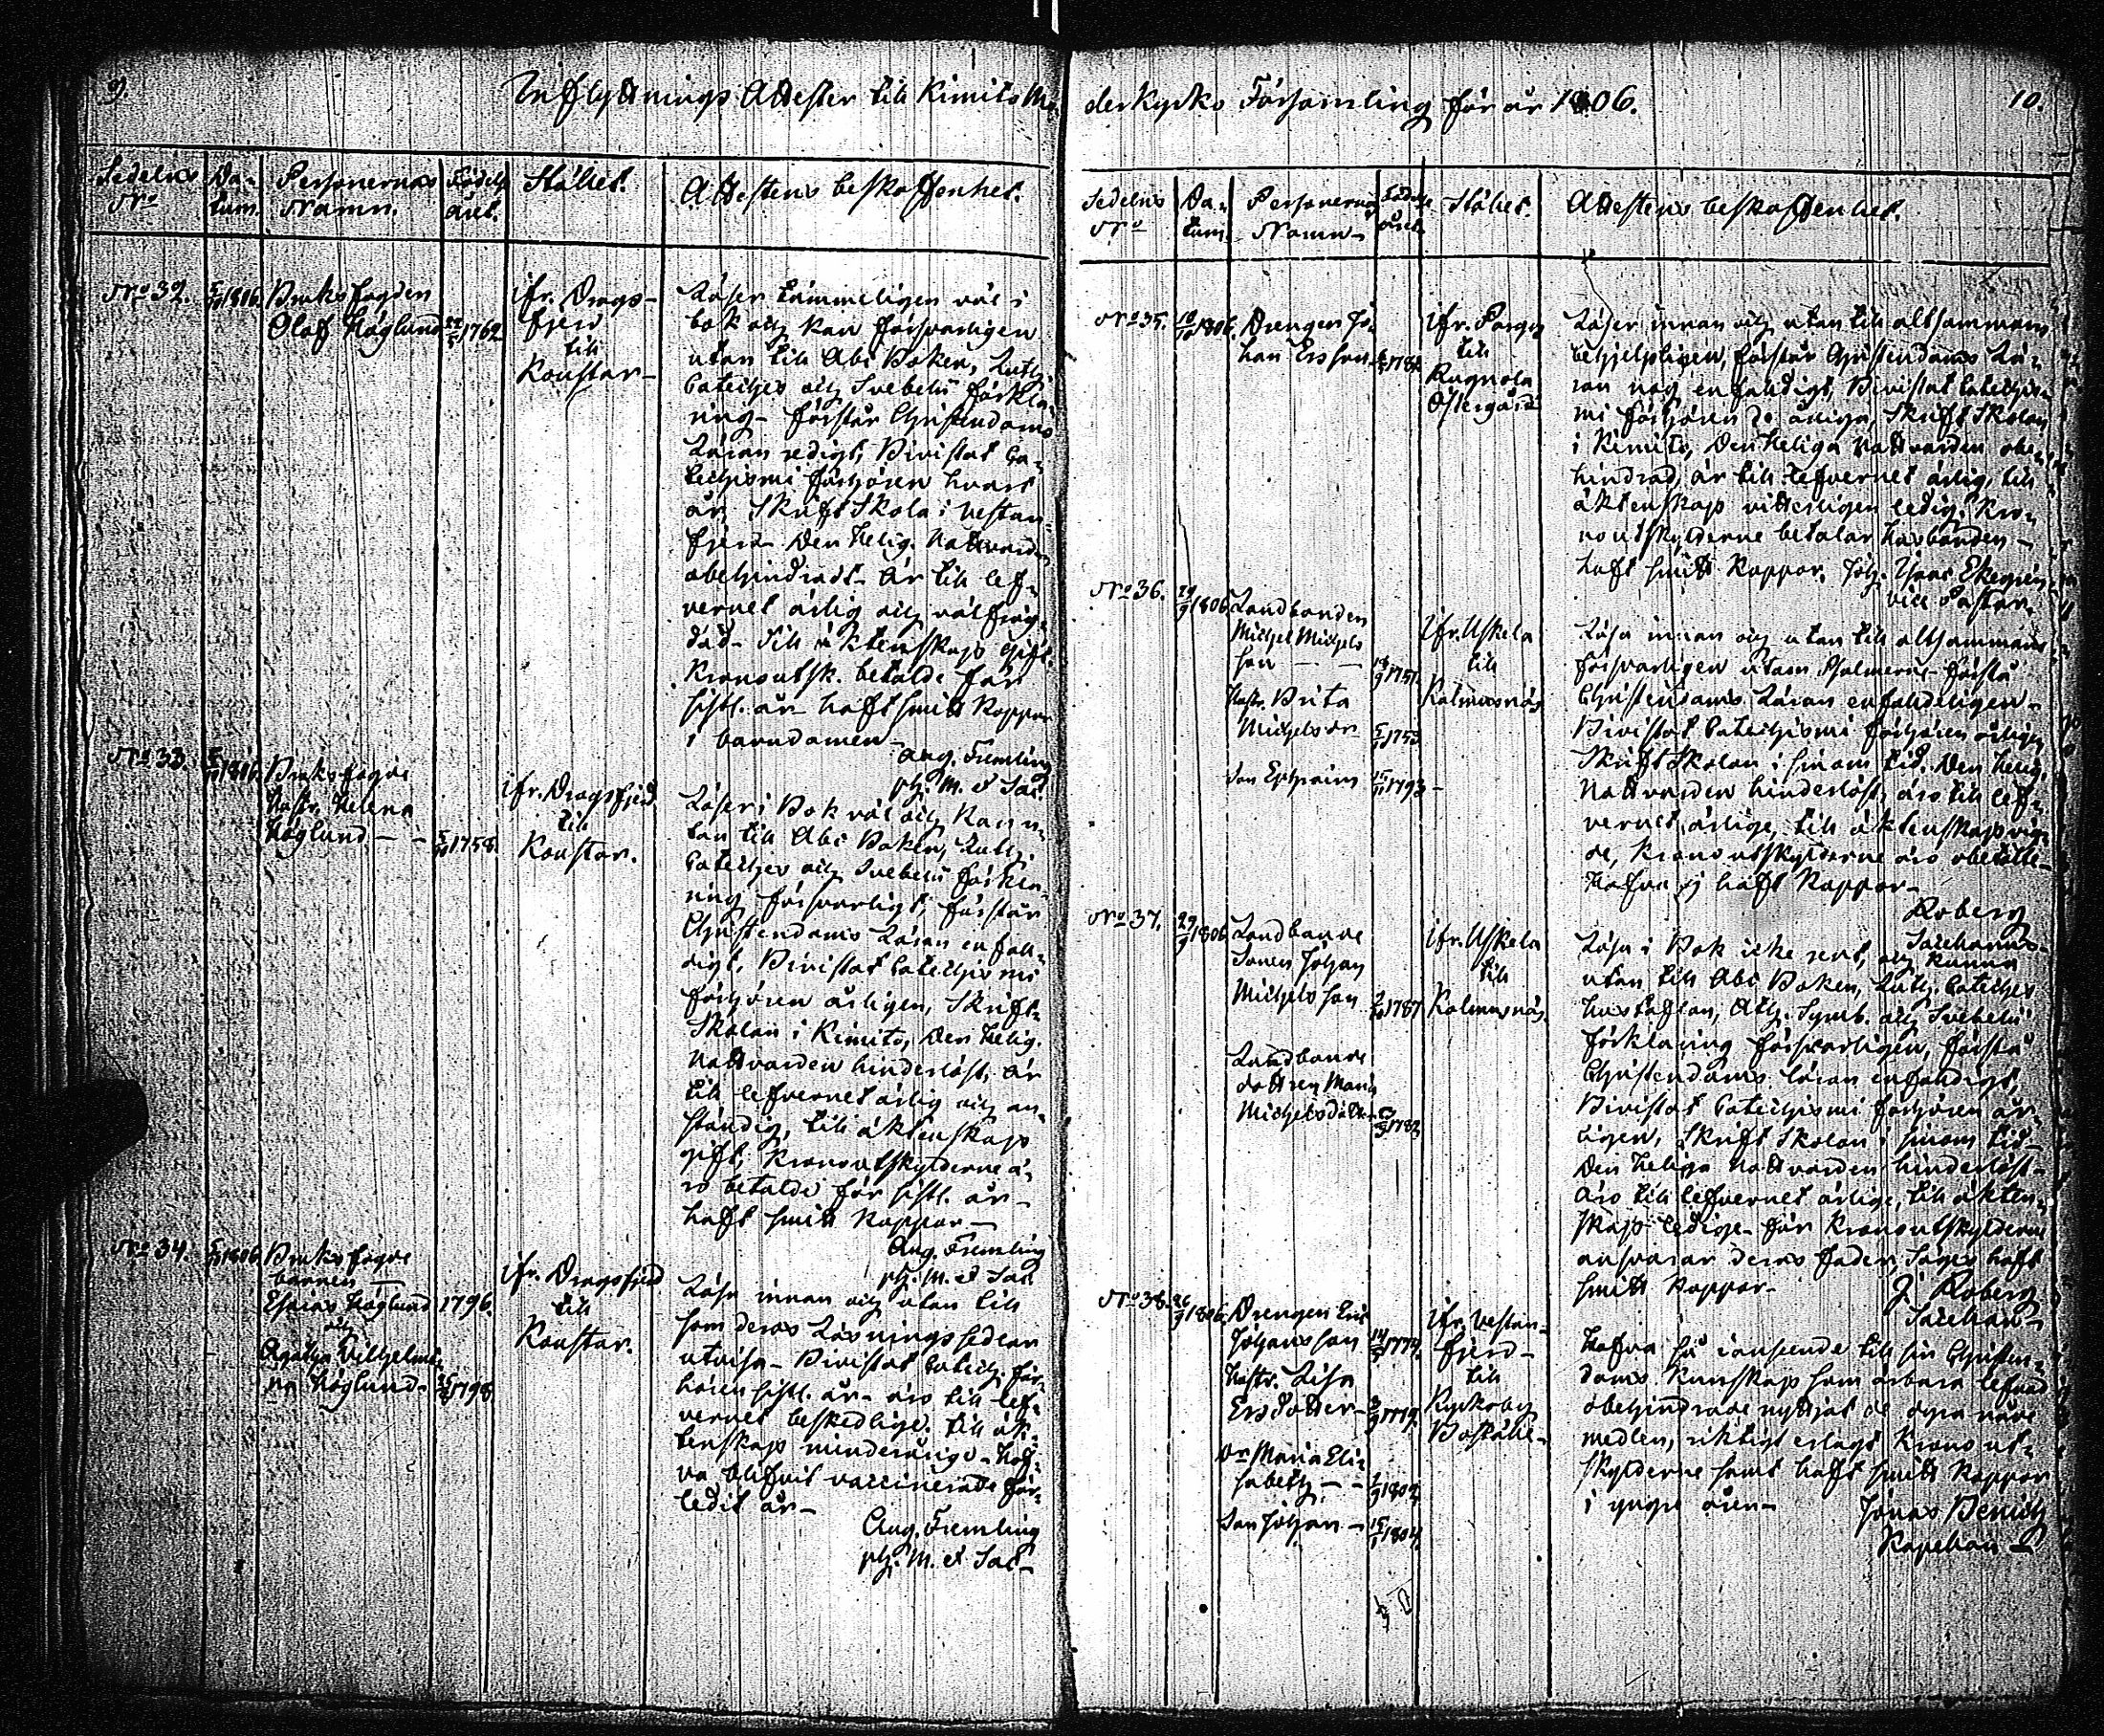 9.
Inflyttnings Attester till Kimito Mo
Sedelns
No
Da-
tum.
Personernas
Namn.
Födels
året.
Stället.
Attestens beskaffenhet.
No 32.
1806.
Bruksfogden
Olof Höglund
1762
ifr. Drags-
fjerd
till
Konstar-
Läser tämmeligen väl i
bok och kan försvarligen
utan till Abc Boken, Luth.
Cateches och Svebelii förkla-
ring- förstår Christendoms
Läran redigt, Bivistat Ca-
techismi förhören hvart
år, Skrift Skola i Vestan-
fjerd- Den Helig. Nattvarden
obehindradt- är till lef-
vernet ärlig och välfräg-
dad- till äktenskap gift.
Kronoutsk. betalde för
sistl. år- haft smitt Koppor
i barndomen-
Aug. Fremling
ph. M. et Sac.
No 33.
1806.
Bruksfogde
Hustr. Helena
Höglund - -
1758.
ifr. Dragsfjerd.
till
Konstar.
Läser i Bok väl och kan u-
tan till Abc Boken, Luth.
Cateches och Svebelii förkla-
ring försvarligt, förstår
Christendoms Läran enfall-
digt, Bivistat Catechismi
förhören årligen, Skrift-
Skolan i Kimito, Den Helig.
Nattvarden hinderlöst, är
till lefvernet ärlig och an-
ständig, till äktenskap
gift, Kronoutskylderne ä-
ro betalde för sistl. år-
haft smitt Koppor-
Aug. Fremling
ph. M. et Sac.
No 34.
1806.
Bruksfogde
barnen -
Esaias Höglund
och
Agatha Vilhelmi-
na Höglund-
1796.
1798.
ifr. Dragsfjerd
till
Konstar.
Läsa innan och utan till
som deras Läsnings sedlar
utvisa- Bivistat Catech. för-
hören sistl. år- äro till lef-
vernet beskedlige. till äk-
tenskap minderårige- Haf-
va blifvit vaccinerade för-
ledit år-
Aug. Fremling
ph. M. et Sac-
derkyrko Församling för år 1806.
10.
Sedelns
No
Da-
tum.
Personernas
Namn-
Födelse
året.
Stället.
Attestens beskaffenhet.
No 35.
1806.
Drengen Jo-
han Ersson
ifr. Pargas
till
Rugnola
Östergård
Läser innan och utan till altsammans
behjelpligen, förstår Christendoms Lä-
ran nog enfaldigt, Bivistat Catechis-
mi förhören årliga, Skrift Skolan
i Kimito, Den Heliga Nattvarden obe-
hindrad, är till lefvernet ärlig, till
äktenskap vitterligen ledig. Kro-
no utskylderne betalar husbonden-
haft smitt Koppor.
vice Pastor.
No 36.
1806
Landbonden
Michel Michels
son - -
1751.
Hustr. Brita
Michelsdr
1753
Son Ephraim
1793-
ifr. Uskela
till
Kalmusnäs
Läsa innan och utan till altsammans
försvarligen utom Psalmerne- förstå
Christendoms Läran enfaldeligen-
Bivistat Catechismi förhören årligen
Skrift Skolan i sinom tid. Den Helig.
Nattvarden hinderlöst, äro till lef-
vernet ärlige, till äktenskap vig-
de, Kronoutskylderne äro obetalte-
Hafva ej haft Koppor-
Roberg
Sacellanus-
No 37.
1806
Landbonde
Sonen Johan
Michelsson
1787
Landbonde
dottren Maria
Michelsdotter
1783
ifr. Uskela
till
Kalmusnäs.
Läsa i Bok icke rent, och kunna
utan till Abc Boken, Luth. Cateches
Hustaflan, Ath. Symb. och Svebelii
förklaring försvarligen, förstå
Christendoms läran enfaldigt,
Bivistat Catechismi förhören år-
ligen, Skrift Skolan i sinom tid-
Den Heliga Nattvarden hinderlöst-
äro till lefvernet ärlige, till äkten-
skap ledige- för Kronoutskylderne
ansvarar deras fader, Säges haft
smitt Koppor-
J. Roberg
Sacellan-
No 38.
1806.
Drengen Eric
Johansson
Hustr. Lisa
Ersdotter-
Dr Maria Eli-
sabeth - -
1802.
Son Johan -
1804.
ifr. Vestan-
fjerd-
till
Kyrkoby
Boställe-
Hafva så i anseende till sin Christen-
doms Kunskap som ärbara lefnad
obehindrade nyttjat de dyra nåde
medlen, riktigt erlagt Krono ut-
skylderne samt haft smitt Koppor
i yngre åren-
Jonas Benich
Kapellan